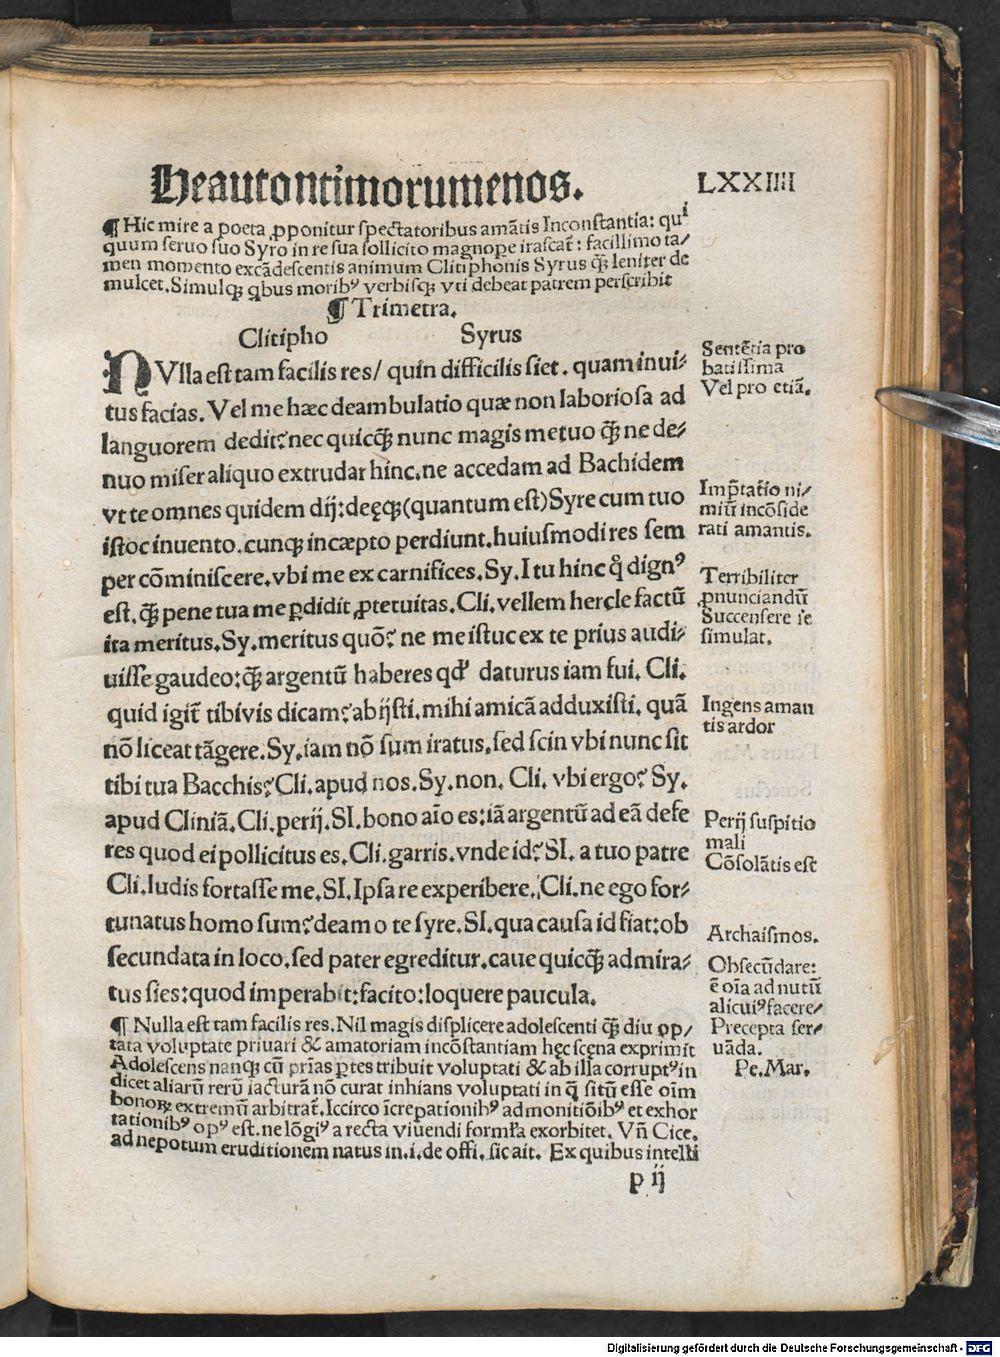 Heautontimorumenos.
LXXIIII
¶ Hic mire a poeta ꝓponitur spectatoribus amãtis Inconstantia: qui
quum seruo suo Syro in re sua sollicito magnope irascat̃: facillimo ta/
men momento excãdescentis animum Clitiphonis Syrus q̃ꝫ leniter de
mulcet. Simulqꝫ qbus moribꝰ verbisqꝫ vti debeat patrem perscribit
¶ Trimetra.
Clitipho Syrus
NVlla est tam facilis res/ quin difficilis siet. quam inui-
tus facias. Vel me hæc deambulatio quæ non laboriosa ad
languorem dedit? nec quicq̃ꝫ nunc magis metuo q̃ꝫ ne de-
nuo miser aliquo extrudar hinc. ne accedam ad Bachidem
vt te omnes quidem dij: deęqꝫ (quantum est) Syre cum tuo
istoc inuento. cunqꝫ incæpto perdiunt. huiusmodi res sem
per cõminiscere. vbi me ex carnifices. Sy. I tu hinc q̊ dignꝰ
est. q̃ꝫ pene tua me ꝑdidit ꝓteruitas. Cli. vellem hercle factũ
ita meritus. Sy. meritus quõ? ne me istuc ex te prius audi-
uisse gaudeo: q̃ꝫ argentũ haberes qd' daturus iam fui. Cli.
quid igit̃ tibivis dicam? abijsti. mihi amicã adduxisti. quã
nõ liceat tãgere. Sy. iam nõ sum iratus. sed scin vbi nunc sit
tibi tua Bacchis? Cli. apud nos. Sy. non. Cli. vbi ergo? Sy.
apud Cliniã. Cli. perij. SI. bono aĩo es: iã argentũ ad eã defe
res quod ei pollicitus es. Cli. garris. vnde id? SI. a tuo patre
Cli. ludis fortasse me. SI. Ipsa re experibere. Cli. ne ego for-
tunatus homo sum? deamo te syre. SI. qua causa id fiat: ob
secundata in loco. sed pater egreditur. caue quicq̃ꝫ admira-
tus sies: quod imperabit: facito: loquere paucula.
¶ Nulla est tam facilis res. Nil magis displicere adolescenti q̃ꝫ diu op/
tata voluptate priuari & amatoriam incõstantiam hęc scena exprimit
Adolescens nanqꝫ cũ prĩas ꝑtes tribuit voluptati & ab illa corruptꝰ in
dicet aliarũ rerũ iacturã nõ curat inhians voluptati in q̃ sitũ esse oĩm
bonoꝝ extremũ arbitrat̃. Iccirco ĩcrepationibꝰ admonitiõibꝰ et exhor
tationibꝰ opꝰ est. ne lõgiꝰ a recta viuendi formĩa exorbitet. Vñ Cice.
ad nepotum eruditionem natus in. i. de offi. sic ait. Ex quibus intelli
p ij
Sentẽtia pro
batissima
Vel pro etiã.
Imp̃tatio ni/
miũ incõside
rati amantis.
Terribiliter
ꝓnunciandũ
Succensere se
simulat.
Ingens aman
tis ardor
Perij suspitio
mali
Cõsolãtis est
Archaismos.
Obsecũdare:
ẽ oĩa ad nutũ
alicuiꝰ facere/
Precepta ser/
uãda.
Pe. Mar.
Digitalisierung gefördert durch die Deutsche Forschungsgemeinschaft - DFG